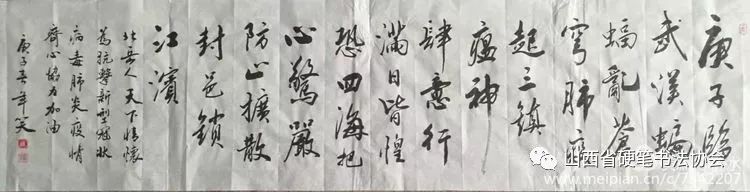 庚子臨
武漢蝙
蝠亂蒼
穹肺疫
起三鎮
瘟神
肆意行
滿目皆惶
恐四海把
心驚嚴
防止擴散
封邑鎖
江濱
北岳人天下情懷
為抗擊新型冠狀
病毒肺炎疫情
齊心協力加油
庚子 年笑
山西省硬笔书法协会
www.meipian.cn